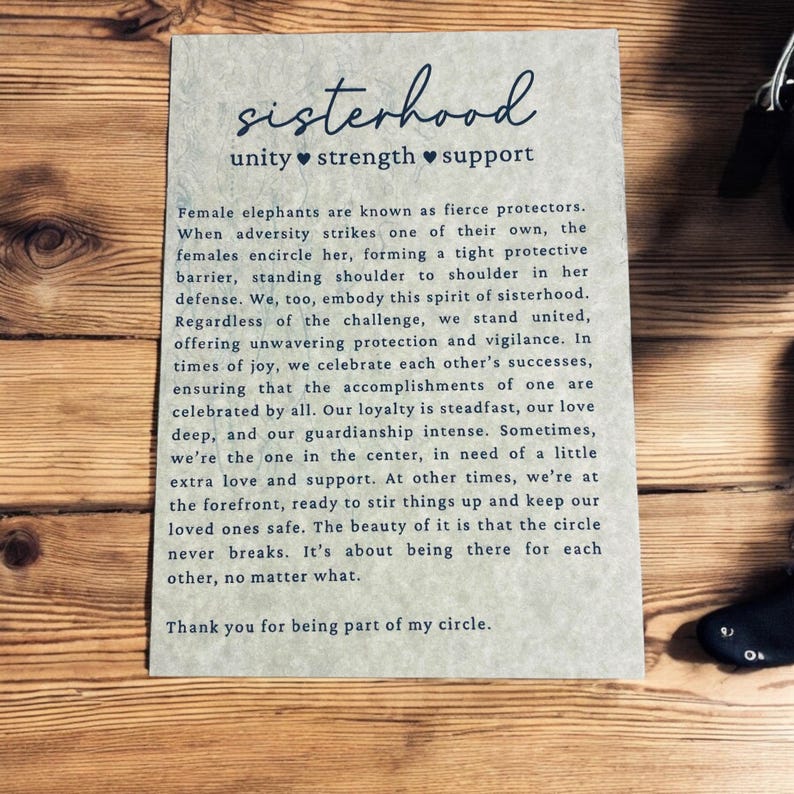 sisterhood
unity ♥ strength ♥ support
Female elephants are known as fierce protectors.
When adversity strikes one of their own, the
females encircle her, forming a tight protective
barrier, standing shoulder to shoulder in her
defense. We, too, embody this spirit of sisterhood.
Regardless of the challenge, we stand united,
offering unwavering protection and vigilance. In
times of joy, we celebrate each other’s successes,
ensuring that the accomplishments of one are
celebrated by all. Our loyalty is steadfast, our love
deep, and our guardianship intense. Sometimes,
we’re the one in the center, in need of a little
extra love and support. At other times, we’re at
the forefront, ready to stir things up and keep our
loved ones safe. The beauty of it is that the circle
never breaks. It’s about being there for each
other, no matter what.
Thank you for being part of my circle.